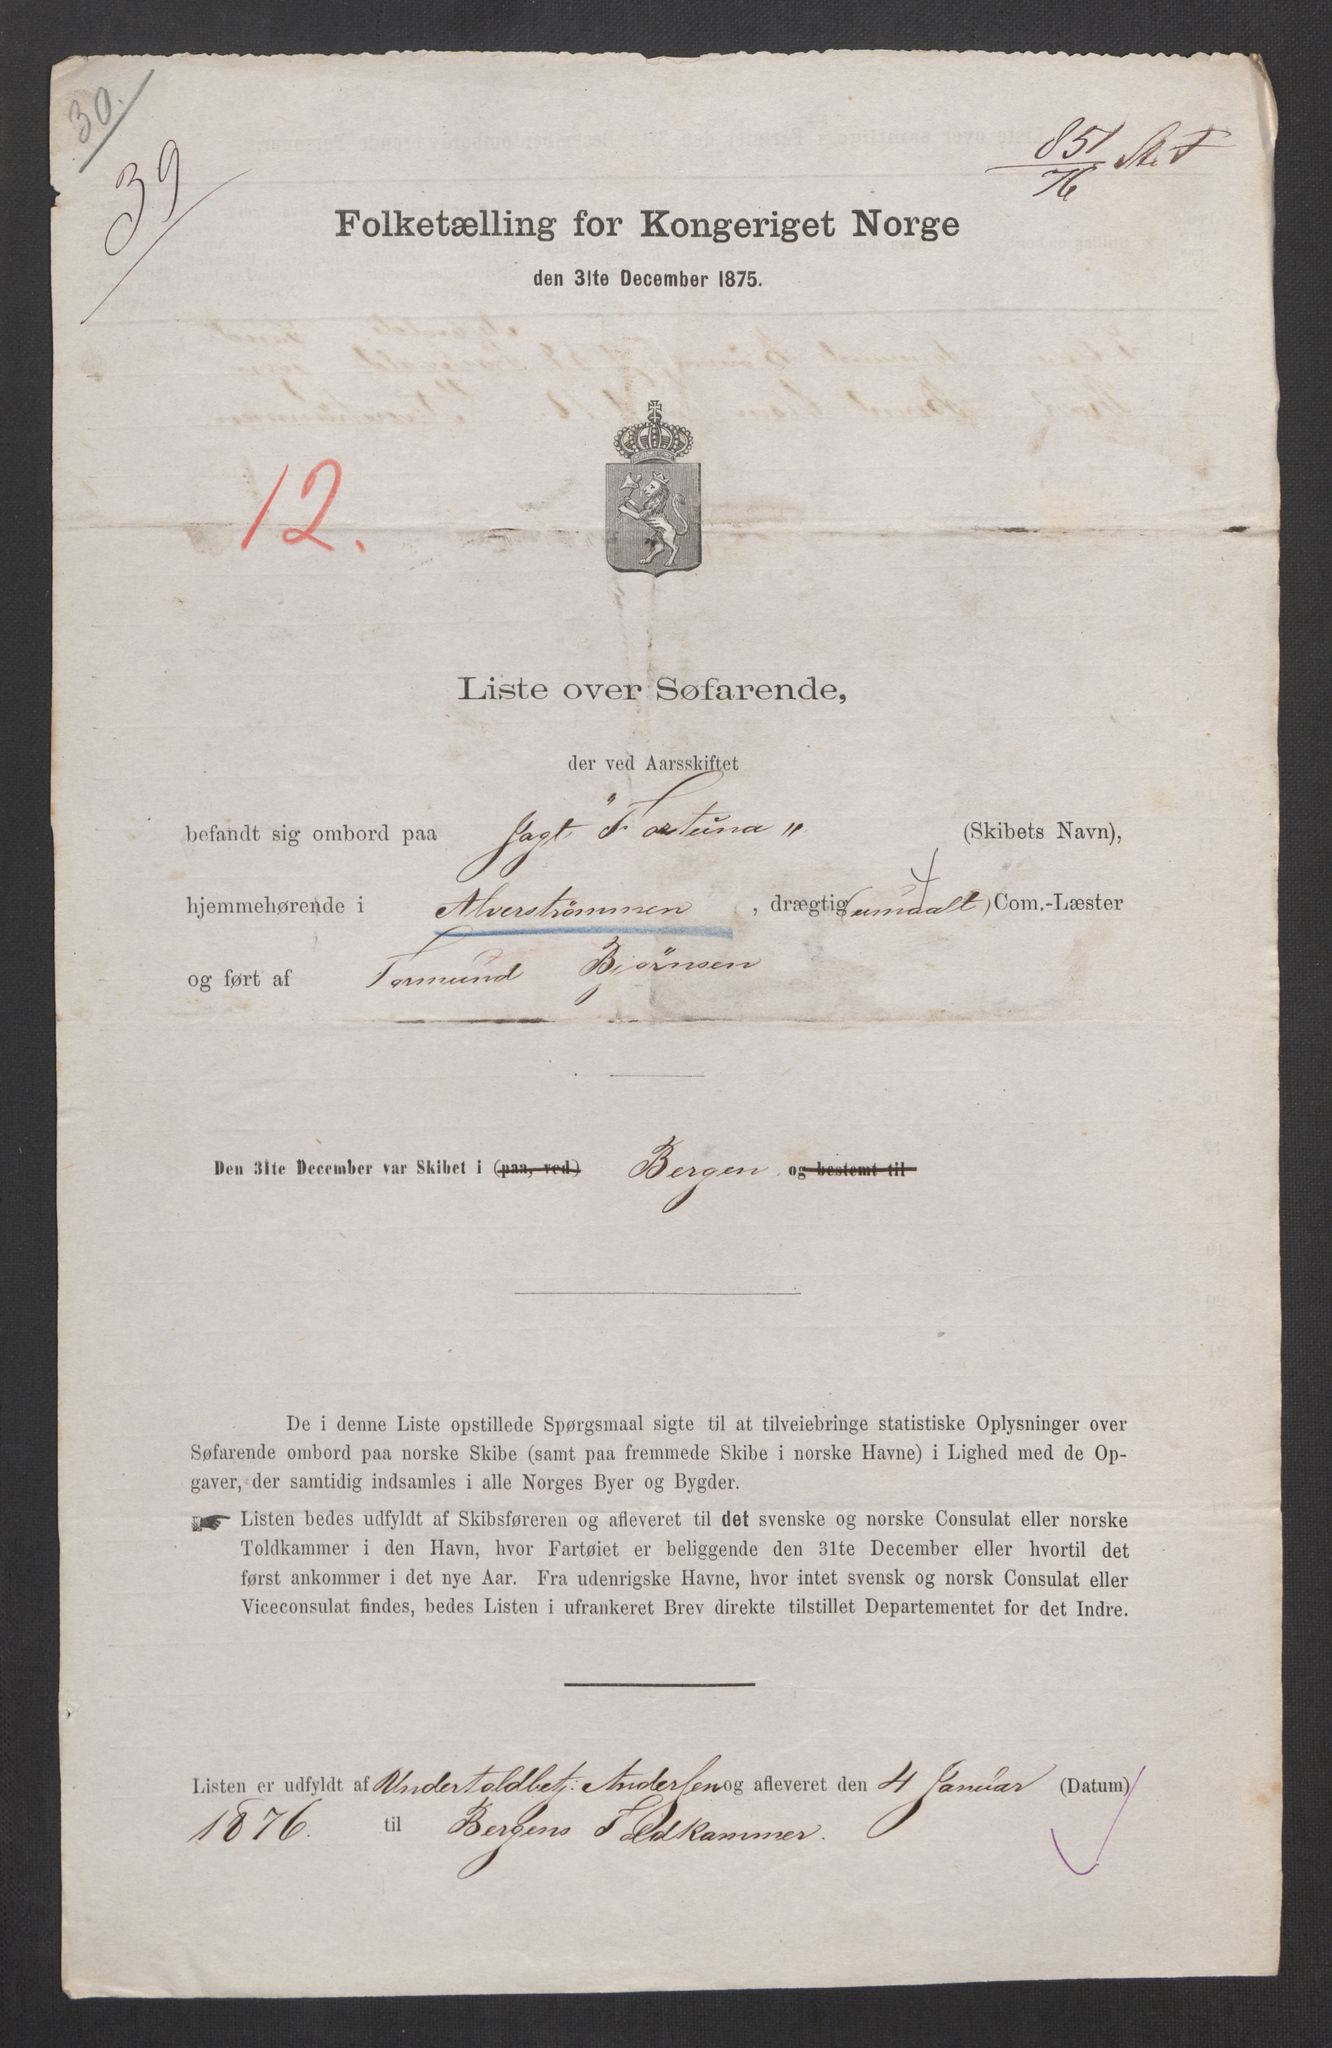 30.
39
851
76
Folketælling for Kongeriget Norge
den 31te December 1875.
12.
Liste over Søfarende,
der ved Aarsskiftet
befandt sig ombord paa Jagt "Fortuna" (Skibets Navn),
hjemmehørende i Alverströmmen, drægtig (umaalt) Com.-Læster
og ført af Tormund Bjørnsen
Den 31te December var Skibet i (paa, ved) Bergen og bestemt til
De i denne Liste opstillede Spørgsmaal sigte til at tilveiebringe statistiske Oplysninger over
Søfarende ombord paa norske Skibe (samt paa fremmede Skibe i norske Havne) i Lighed med de Op-
gaver, der samtidig indsamles i alle Norges Byer og Bygder.
Listen bedes udfyldt af Skibsføreren og afleveret til det svenske og norske Consulat eller norske
Toldkammer i den Havn, hvor Fartøiet er beliggende den 31te December eller hvortil det
først ankommer i det nye Aar. Fra udenrigske Havne, hvor intet svensk og norsk Consulat eller
Viceconsulat findes, bedes Listen i ufrankeret Brev direkte tilstillet Departementet for det Indre.
Listen er udfyldt af Undertoldbetj: Andersen og afleveret den 4 Januar (Datum)
1876. til Bergens Toldkammer.